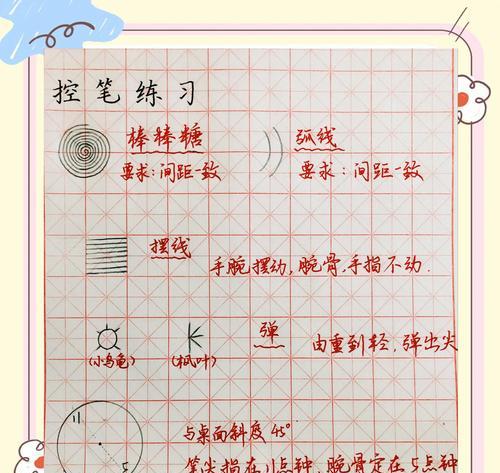 控笔练习
棒棒糖
要求：间距一致
弧线
要求：间距一致
摆线
手腕摆动，腕骨，手指不动．
弹
由重到轻，弹出尖
(小乌龟)
(枫叶)
11
与桌面斜度45°
笔尖指在11点钟，腕骨定在5点钟